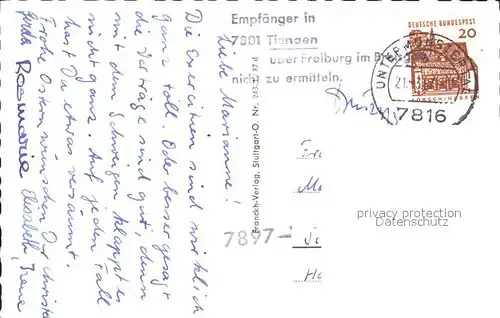 Liebe Marianne!
Die Exerzitien sind wirklich
ganz toll. Oder besser gesagt
die Vorträge sind gut, denn
mit dem Schweigen klappt es
nicht ganz. Auf jeden Fall
hast Du etwas versäumt.
Frohe Ostern wünschen Dir Christa
Rosmarie Elisabeth, Irene
Franckh-Verlag, Stuttgart-O. Nr.
Empfänger in
7801 Tiengen
über Freiburg im
nicht zu ermitteln.
DEUTSCHE BUNDESPOST
20
21.
7816
7897
privacy protection
Datenschutz